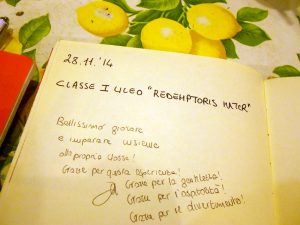 28.11.'14
CLASSE I LICEO "REDEMPTORIS MATER"
Bellissimo giocare
e imparare insieme
alla propria classe!
Grazie per questa esperienza!
Grazie per la gentilezza!
Grazie per l'ospitalità!
Grazie per il divertimento!